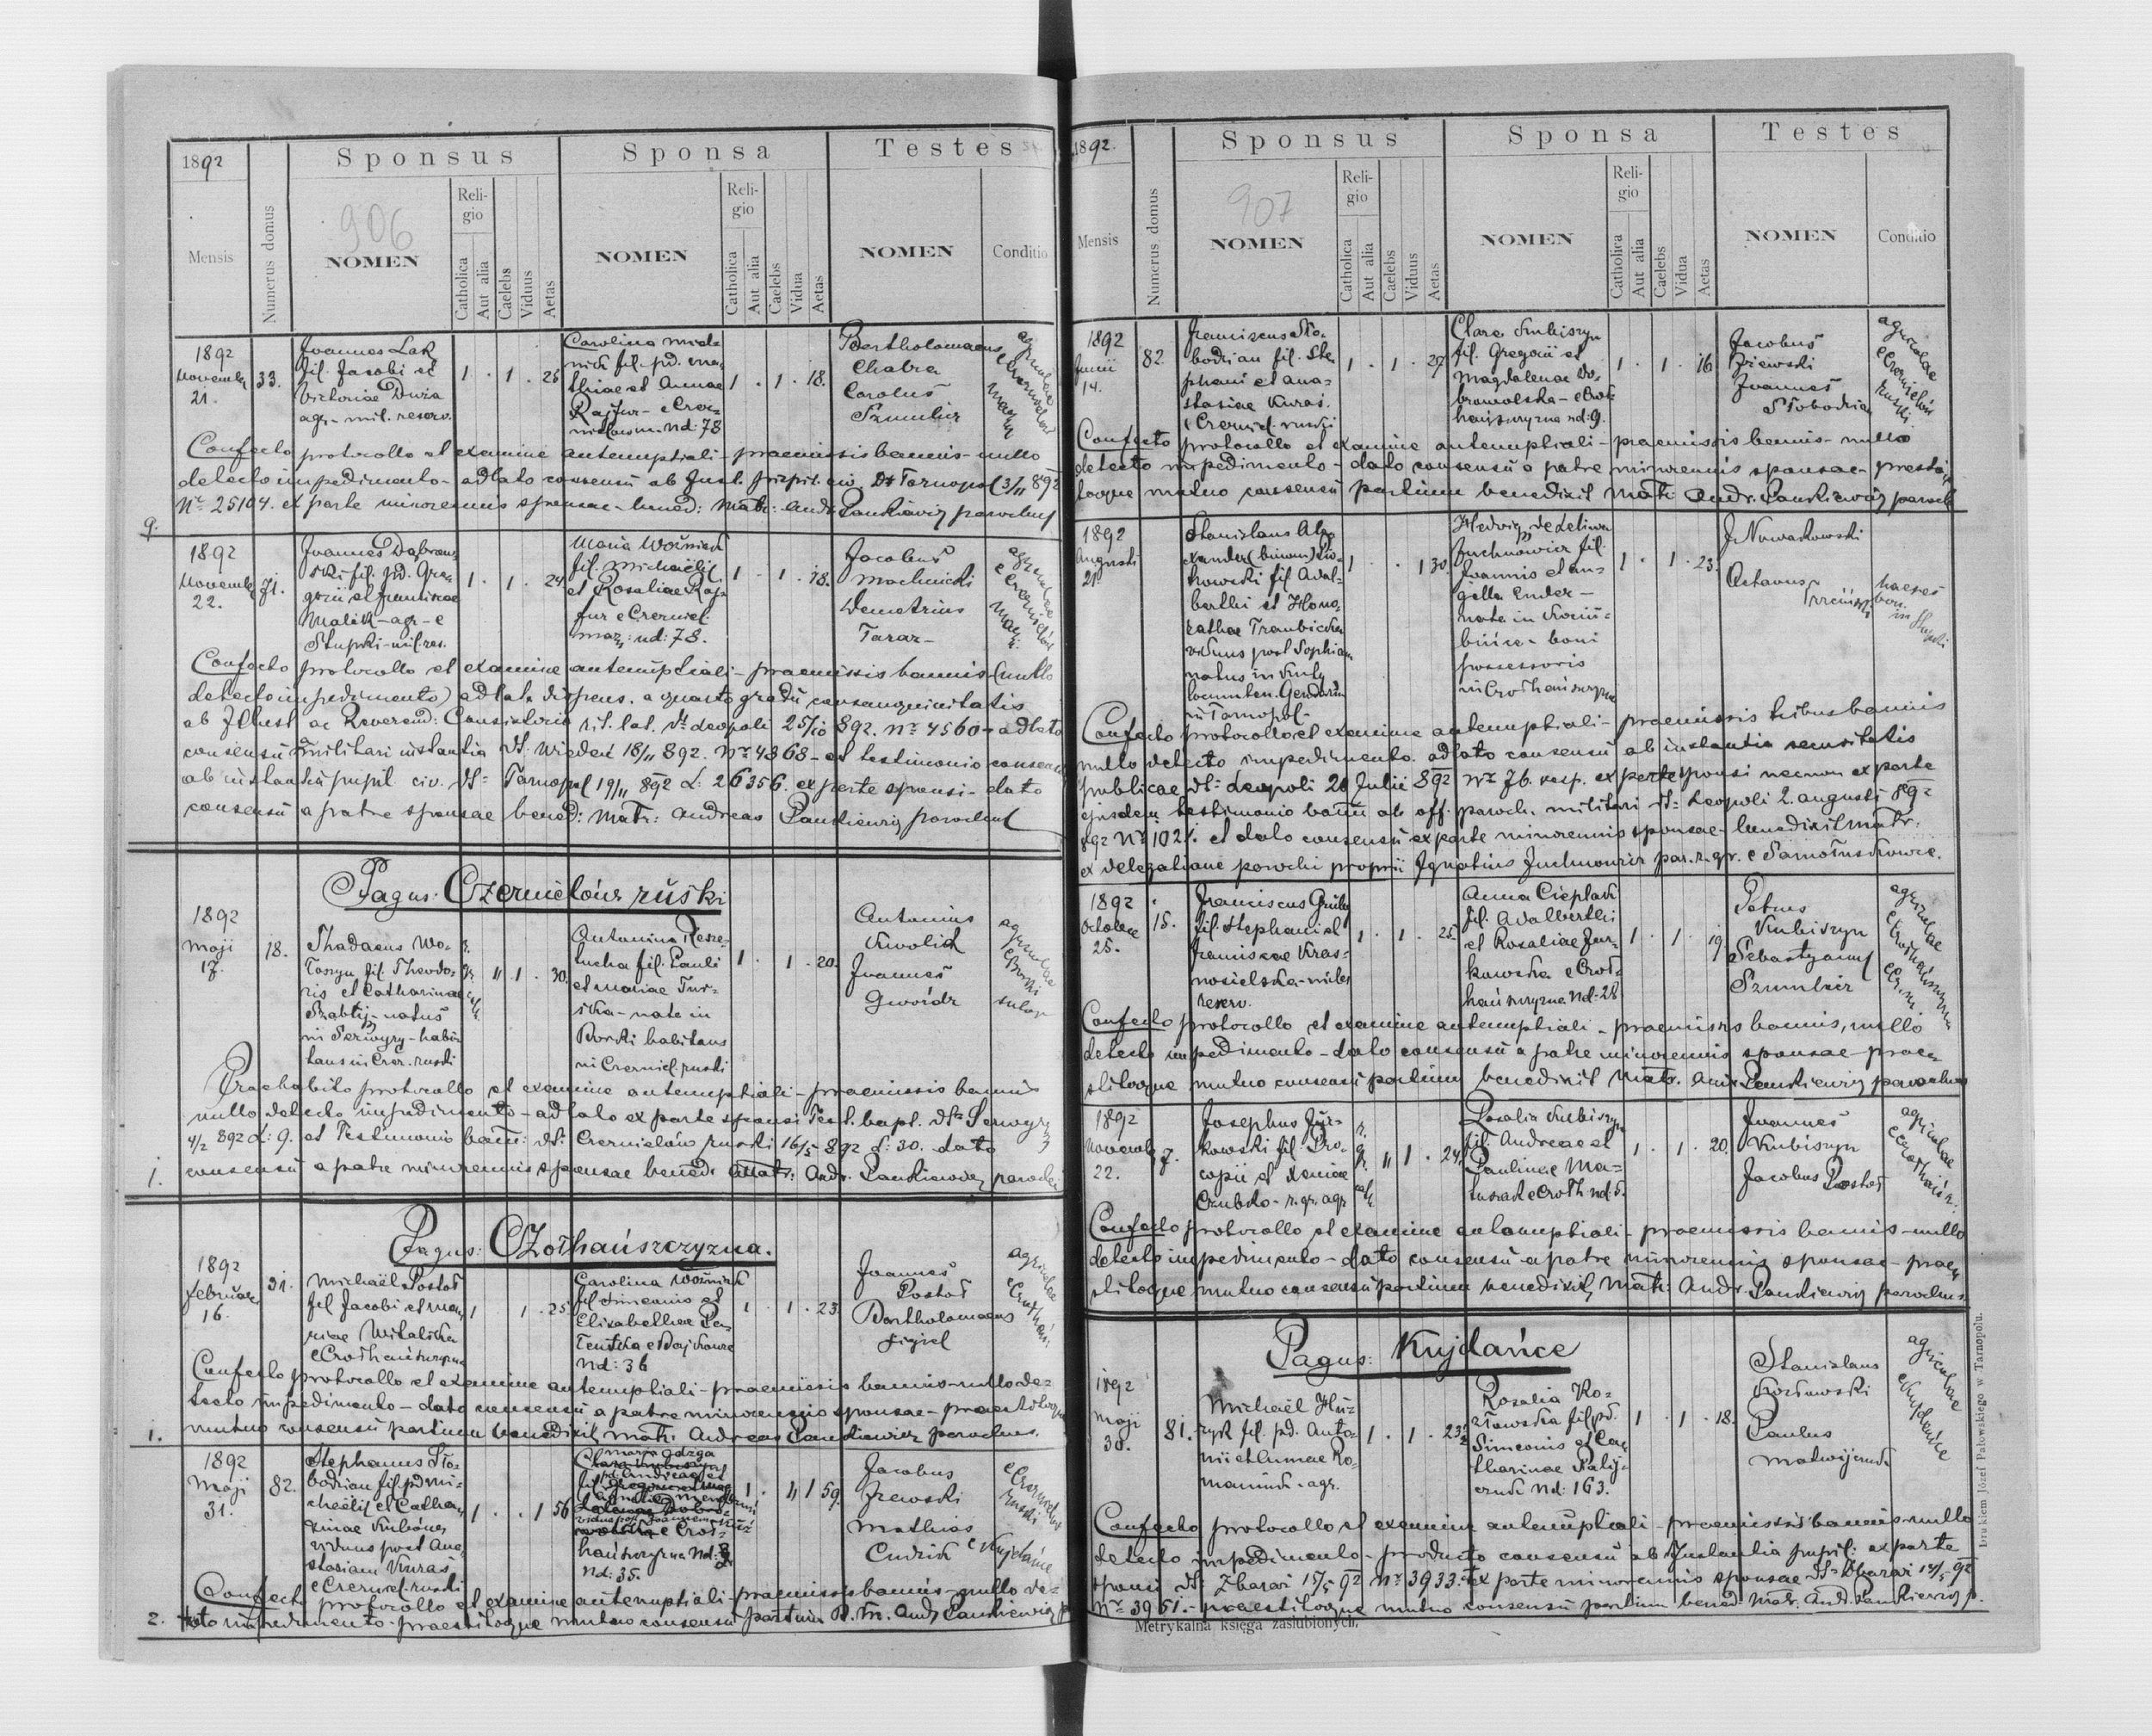 1892
Sponsus
Sponsa
Testes
Mensis
Numerus domus
906
NOMEN
Religio
Catholica
Aut alia
Caelebs
Viduus
Aetas
NOMEN
Religio
Catholica
Aut alia
Caelebs
Vidua
Aetas
NOMEN
Conditio
1892
Novembr
21.
33.
Joannes Lak
fil. Jacobi et
Victoriae Duża
agr. - mil. reserv.
1 . 1 . 25
Carolina
fil. pd. Ma-
thiae et Annae
Rajfur -
Nd: 78
1 . 1 . 18.
Bertholomaeus
Chabra
Carolus
Szumlicz
Confecto protocollo et examine antenuptiali - praemissis bannis - nullo
detecto impedimento - adlato consensu ab Inst. Tarnopol 3/11 892
Nr 25104. ex parte minorennis sponsae - bened: Matr: Andr Pankiewicz parochus
9.
1892
Novembr
22.
71.
Joannes Dąbrow-
ski fil. pd. Gre-
gorii et Franciscae
Malik - agr - e
Stupki - mil. res.
1 . 1 . 24
Maria Woźniak
fil. Michaëlis
et Rosaliae Raj-
fur e Czerniel.
maz: nd: 78.
1 . 1 . 18.
Jacobus
Machnicki
Demetrius
Taraz -
Confecto protocollo et examine antenuptiali - praemissis bannis (nullo
detecto impedimento) adlata dispens. a quarto gradu consanguinitatis
ab Illust ac Reverend: Consistorio rit. lat. dt Leopoli 25/10 892. Nr 4560 - adlato
consensu a militari instantia dt. Wiedeń 18/11 892. Nr 4368 - et testimonio
ab instantia pupil. civ. dt = Tarnopol 19/11 892 L: 26356. ex parte sponsi - dato
consensu a patre sponsae bened: Matr: Andreas Pankiewicz parochus
Pagus: Czernielów ruski
1892
Maji
17.
18.
Thadaeus Wo-
Toszyn fil. Theodo-
ris et Catharinae
Szablij - natus
in Serwyry - habi-
tans in Czer. ruski
11 1 . 30.
Antonina
fil. Pauli
et Mariae Tur-
ska - nata in
Borki habitans
in Czerniel. ruski
1 1 . 20.
Antonius
Kwolik
Joannes
Gwóźdź
Praehabito protocollo et examine antenuptiali - praemissis bannis
nullo detecto impedimento - adlato ex parte sponsi Test. bapt. dt=
4/2 892 L: 9. et Testimonio bann: dt: Czernielów ruski 16/5 892 L: 30. dato
consensu a patre minorennis sponsae bened: Matr: Andr. Pankiewicz parochus
1.
Pagus: CZołhańszczyzna.
1892
Februar
16.
31.
Michaël Postoł
fil Jacobi et Ma-
riae Witalicka
e Czołhańszczyzna
1 1 . 25
Carolina Woźniak
fil. Simeonis et
Elisabethae
Nd: 36
1 . 1 . 23.
Joannes
Postoł
Bartholomaeus
Figiel
Confecto protocollo et examine antenuptiali - praemissis bannis - nullo de-
tecto impedimento - dato consensu a patre minorennis sponsae - praestitoque
mutuo consensu partium benedixit Matr: Andreas Pankiewicz parochus.
1.
1892
Maji
31.
82.
Stephanus Sło-
bodzian fil. pd Mi-
chaëlis et Catha-
rinae
viduus post Ana-
stasiam Kuraś
e Czerniel. ruski
1 . . 1 56
Maria
Andreae et
e Czoł-
hańszczyzna Nd:
Nd: 35.
1 . 11 1 59.
Jacobus
Mathias
Confecto protocollo et examine antenuptiali - praemissis bannis - nullo de-
tecto impedimento - praestitoque mutuo consensu partium B. M. Andr Pankiewicz p
2.
1892.
Sponsus
Sponsa
Testes
Mensis
Numerus domus
907
NOMEN
Religio
Catholica
Aut alia
Caelebs
Viduus
Aetas
NOMEN
Religio
Catholica
Aut alia
Caelebs
Vidua
Aetas
NOMEN
Conditio
1892
Junii
14.
82.
Franciscus Sło-
bodzian fil. Ste-
phani et Ana-
stasiae Kuraś.
Czerniel. ruski
1 . 1 . 27
Clara Kubiszyn
fil. Gregorii et
Magdalenae Do-
browolska - e Czoł-
hańszczyzna nd: 9.
1 . 1 . 16
Jacobus
Joannes
Słobodzian
Confecto protocollo et examine antenuptiali - praemissis bannis - nullo
detecto impedimento - dato consensu a patre minorennis sponsae - presti-
toque mutuo consensu partium benedixit Matr: Andr. Pankiewicz paroch
1892
Augusti
21
Stanislaus Ale-
xander (binom)
fil Adal-
berthi et Hono-
rathae Trambicka
viduus post Sophiam
natus in
locumten. Gendarm
in Tarnopol -
1 . . 1 30
Hedvig de Leliwa
Juchnowicz fil.
Joannis et An-
gela Ender -
nata in
- boni
possessoris
in Czołhańszczyzna
1 . 1 . 23.
J. Nowakowski
Octavus
Confecto protocollo et examine antenuptiali - praemissis tribus bannis
nullo detecto impedimento. adlato consensu ab instantia securitatis
publicae dt: Leopoli 20 Julii 892 Nr 76 resp. ex parte sponsi necnon ex parte
ejusdem testimonio bann ab off. paroch. militari dt = Leopoli 2. Augusti 89=
892 Nr 1021. et dato consensu ex parte minorennis sponsae - benedixit Matr.
ex delegatione parochi proprii Ignatius Juchnowicz par. r. gr. e
1892
Octobr
25.
15.
Franciscus
fil. Stephani et
Franciscae Kras-
nosielska - miles
reserv.
1 . 1 . 25
Anna Cieplak
fil. Adalberthi
et Rosaliae Jur-
kowska e Czoł-
hańszczyzna Nd: 28
1 . 1 . 19
Petrus
Kubiszyn
Sebastyanus
Szumlicz
Confecto protocollo et examine antenuptiali - praemissis bannis, nullo
detecto impedimento - dato consensu a patre minorennis sponsae - prae-
stitoque mutuo consensu partium benedixit Matr. Andr Pankiewicz parochus
1892
Novembr
22.
7.
Josephus Jur-
kowski fil. Pro-
copii et Xeniae
Czubko - r. gr. agr
11 1 . 24
Rosalia Kubiszyn
fil. Andreae et
Paulinae Ma-
tuszak e Czołh. nd: 5.
1 . 1 . 20.
Joannes
Kubiszyn
Jacobus Postoł
Confecto protocollo et examine antenuptiali - praemissis bannis - nullo
detecto impedimento - dato consensu a patre minorennis sponsae - prae-
stitoque mutuo consensu partium benedixit, Matr: Andr. Pankiewicz parochus.
Pagus: Kujdańce
1892
Maji
30.
81.
Michaël Hu-
zyk fil. pd. Anto-
nii et Annae Ro-
maniuk - agr.
1 . 1 . 23½
Rosalia Ko-
złowska fil. pd.
Simeonis et Ca-
tharinae
Nd: 163.
1 . 1 . 18.
Stanislaus
Kozłowski
Paulus
Matwijczuk
agricolae
e Kujdańce
Confecto protocollo et examine antenuptiali - praemissis bannis - nullo
detecto impedimento - producto consensu ab Instantia pupil: ex parte
sponsi dt: Zbaraż 15/5 92 Nr 3933. - ex parte minorennis sponsae dt = Zbaraż 15/5 92
Nr 3951. - praestitoque mutuo consensu partium bened. Matr. Andr. Pankiewicz p.
Metrykalna księga zaślubionych.
Drukiem Józef Pałowskiego w Tarnopolu.